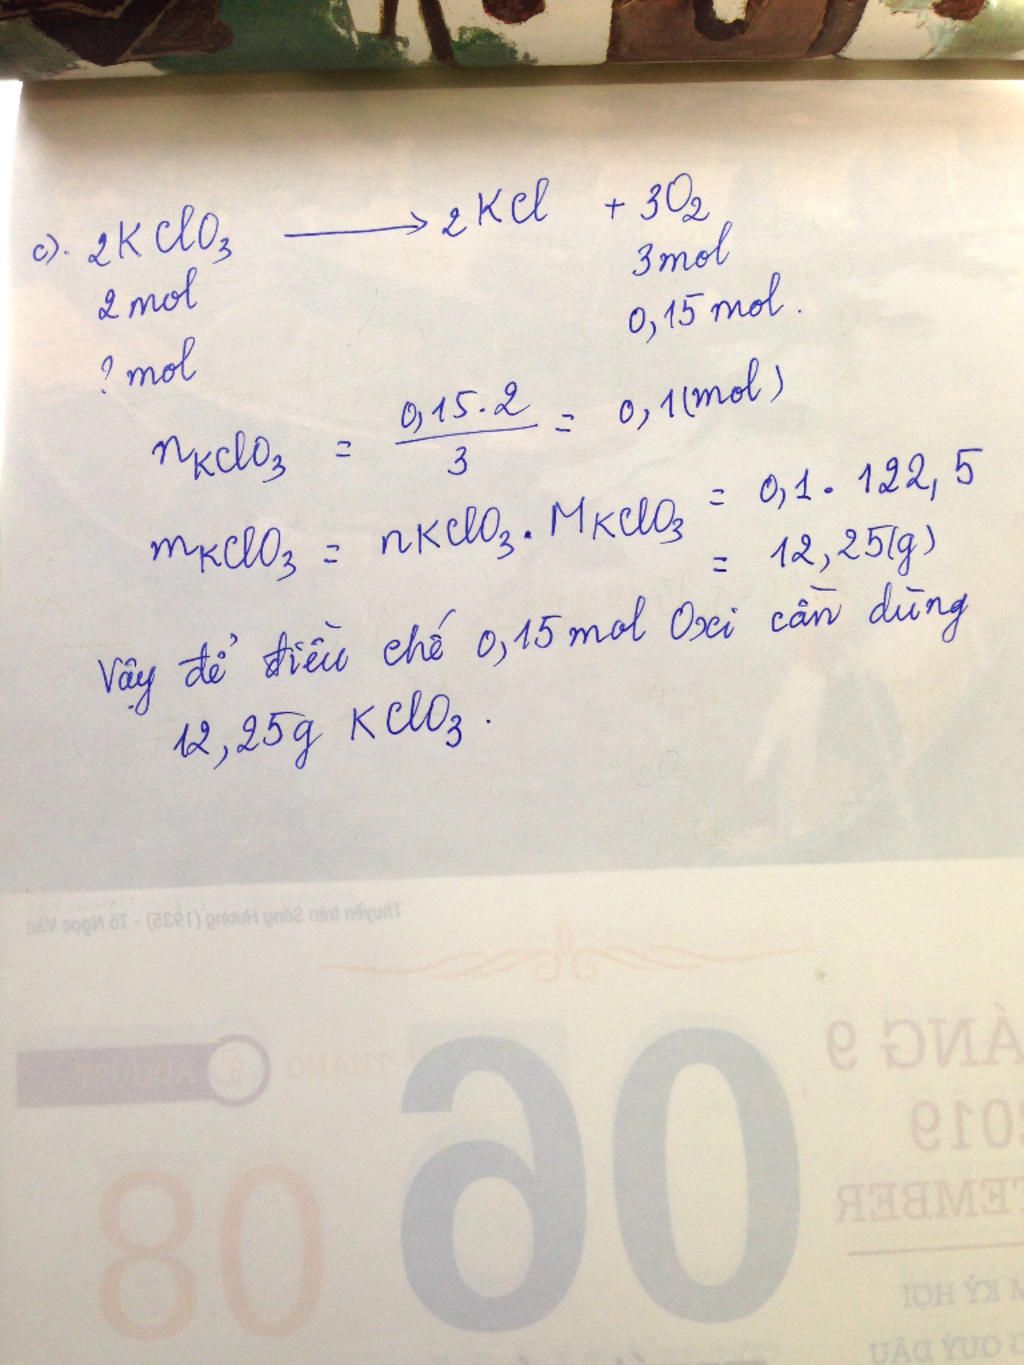 c). 2KClO3 → 2KCl + 3O2
2 mol 3 mol
? mol 0,15 mol.
nKClO3 = 0,15.2 / 3 = 0,1(mol)
mKClO3 = nKClO3 . MKClO3 = 0,1. 122,5
= 12,25(g)
Vậy để điều chế 0,15 mol Oxi cần dùng
12,25g KClO3.
Thuyền trên Sông Hương (1935) - Tô Ngọc Vân
THÁNG 8 AUGUST
ÁNG 9
06
2019
08
TEMBER
KỶ HỢI
QUÝ DẬU